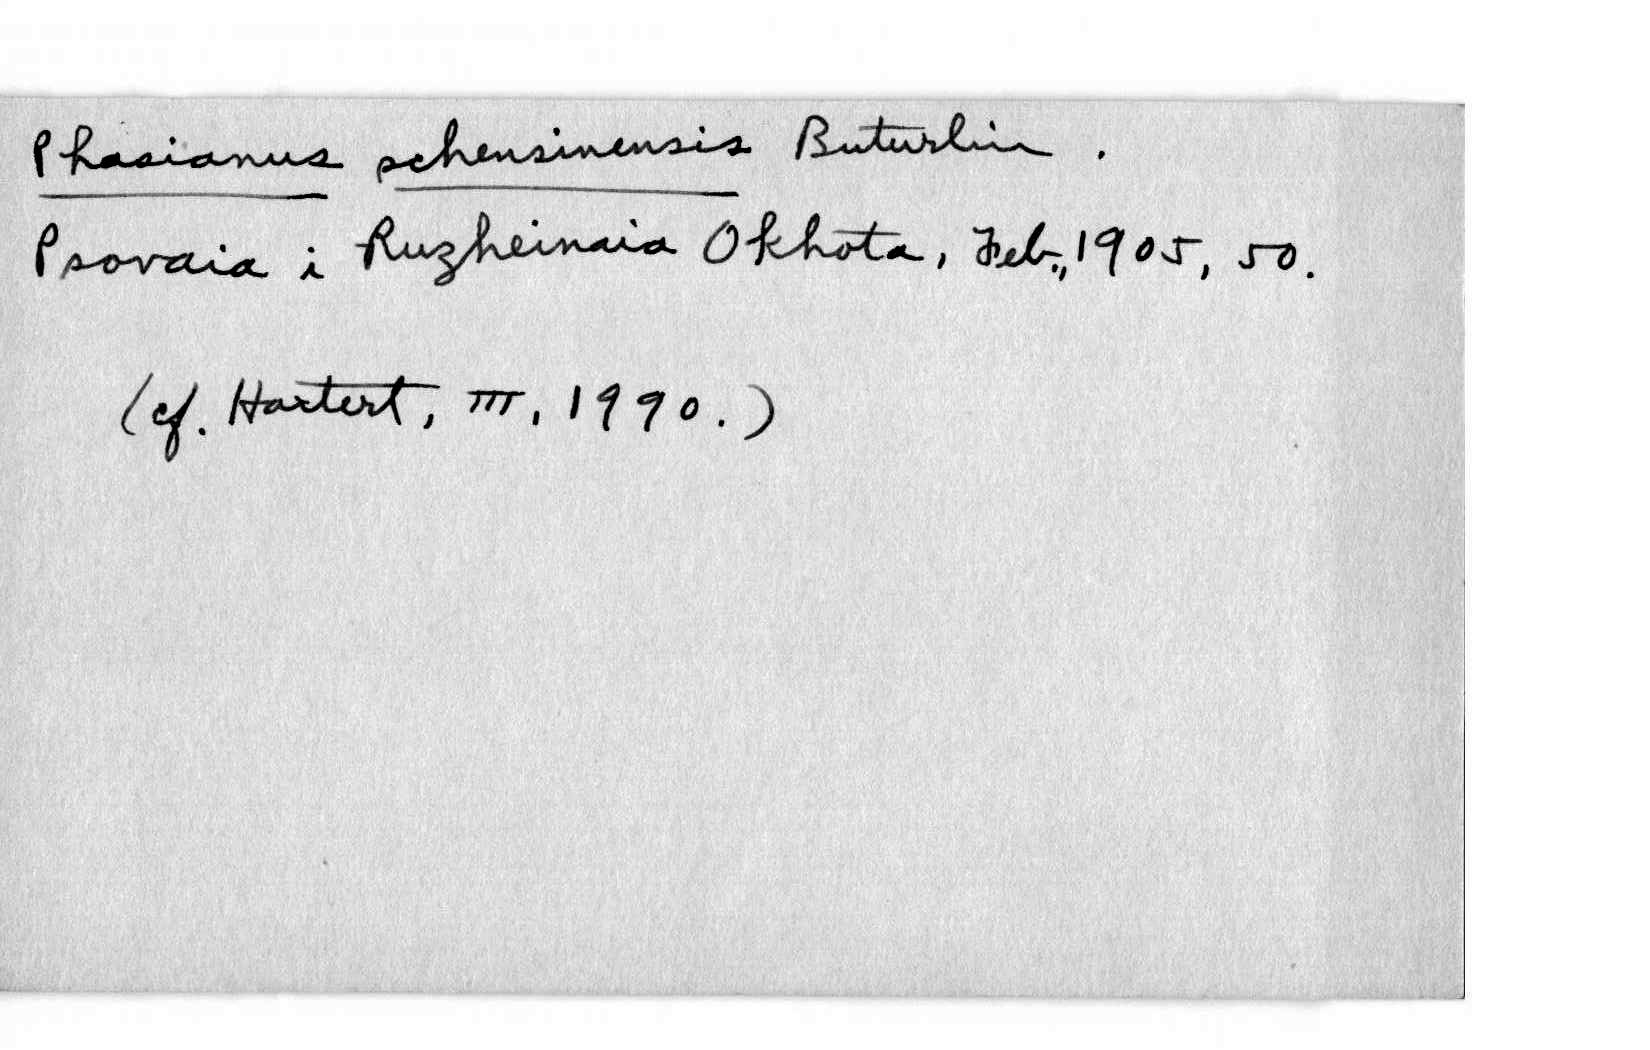 Phasianus schensinensis Buturlin.
Psovaia i Ruzheinaia Okhota, Feb., 1905, 50.
(cf. Hartert, III, 1990.)